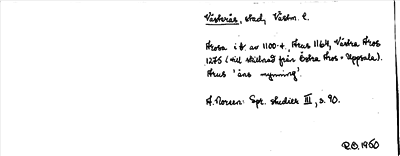 Västerås, stad, Västm. l.
Arosa i b. av 1100-t., Arus 1164, Västra Aros
1275 (till skillnad från Östra Aros = Uppsala).
Arus 'åns mynning'.
A. Noreen: Spr. studier III, s. 90.
R.O. 1950